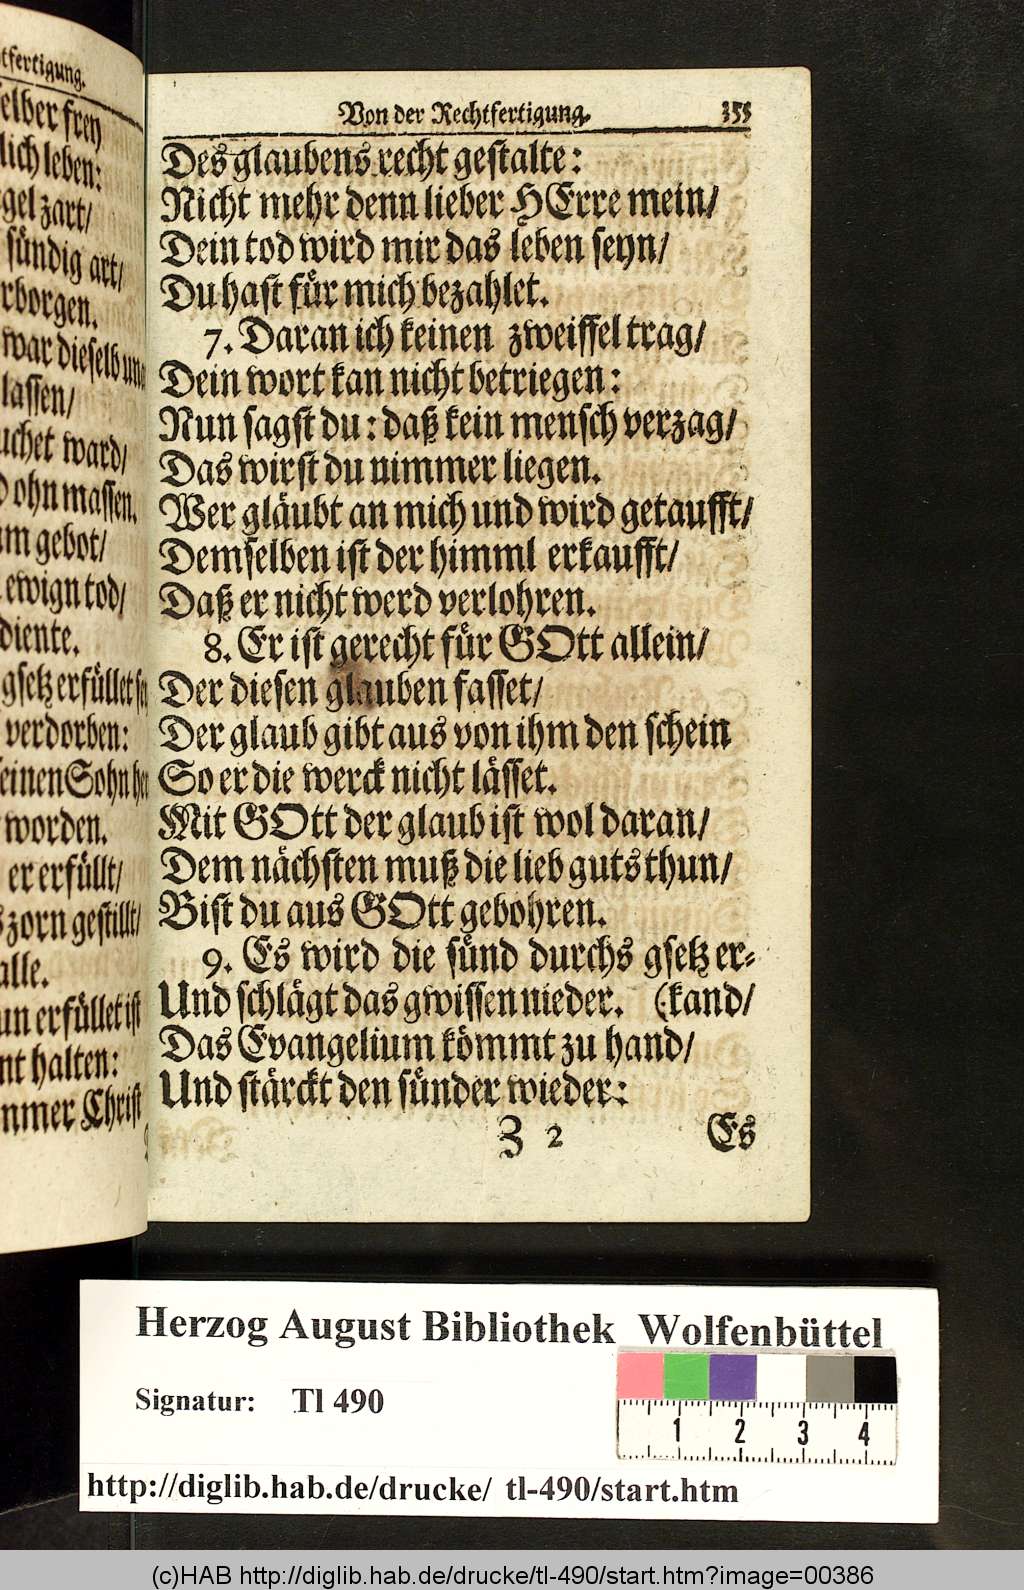 tfertigung.
elber frey
lich leben:
gel zart/
sündig art/
rborgen.
war dieselb und
lassen/
uchet ward/
ohn massen.
um gebot/
ewign tod/
diente.
gsetz erfüllet
verdorben:
seinen Sohn her
worden.
er erfüllt/
zorn gestillt/
alle.
un erfüllet ist
nt halten:
mmer Christ
Von der Rechtfertigung. 355
Des glaubens recht gestalte:
Nicht mehr denn lieber HErre mein/
Dein tod wird mir das leben seyn/
Du hast für mich bezahlet.
7. Daran ich keinen zweiffel trag/
Dein wort kan nicht betriegen:
Nun sagst du: daß kein mensch verzag/
Das wirst du nimmer liegen.
Wer gläubt an mich und wird getaufft/
Demselben ist der himml erkaufft/
Daß er nicht werd verlohren.
8. Er ist gerecht für GOtt allein/
Der diesen glauben fasset/
Der glaub gibt aus von ihm den schein
So er die werck nicht lässet.
Mit GOtt der glaub ist wol daran/
Dem nächsten muß die lieb guts thun/
Bist du aus GOtt gebohren.
9. Es wird die sünd durchs gsetz er-
Und schlägt das gwissen nieder. (kand/
Das Evangelium kömmt zu hand/
Und stärckt den sünder wieder:
Z 2 Es
Herzog August Bibliothek Wolfenbüttel
Signatur: Tl 490
1 2 3 4
http://diglib.hab.de/drucke/ tl-490/start.htm
(c)HAB http://diglib.hab.de/drucke/tl-490/start.htm?image=00386